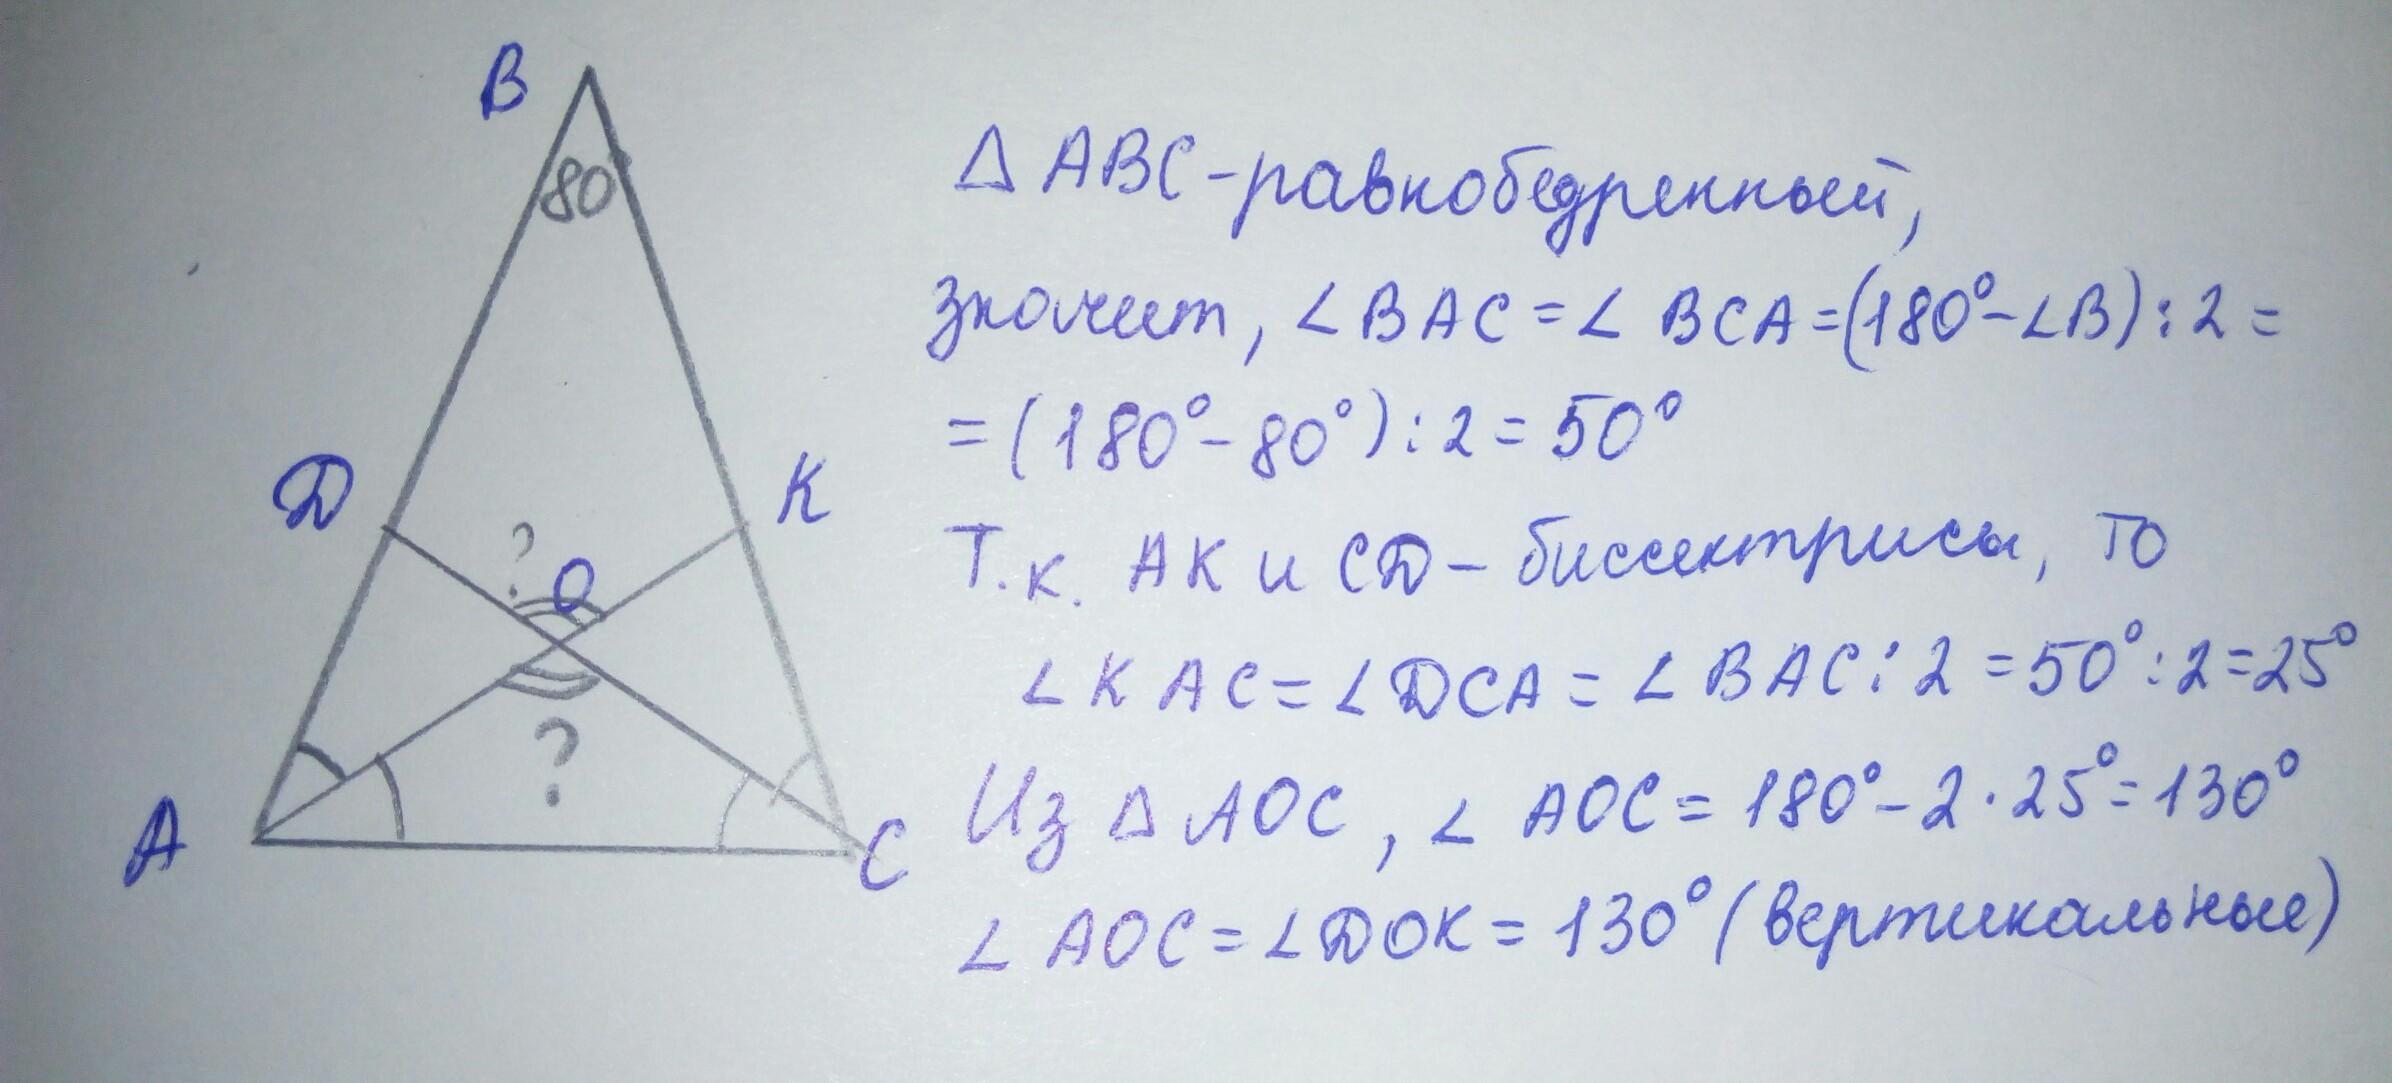 B
80°
Д
K
?
O
?
A
C
Δ ABC - равнобедренный,
значит, ∠BAC = ∠BCA = (180° - ∠B) : 2 =
= (180° - 80°) : 2 = 50°
Т.к. AK и CД - биссектрисы, то
∠KAC = ∠ДCA = ∠BAC : 2 = 50° : 2 = 25°
Из Δ AOC, ∠AOC = 180° - 2 · 25° = 130°
∠AOC = ∠ДOK = 130° (вертикальные)